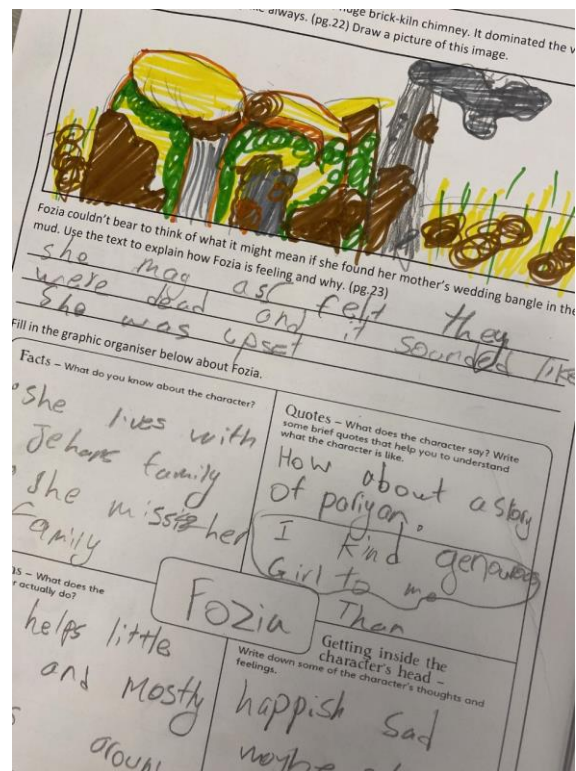 huge brick-kiln chimney. It dominated the v
always. (pg.22) Draw a picture of this image.
Fozia couldn't bear to think of what it might mean if she found her mother's wedding bangle in the
mud. Use the text to explain how Fozia is feeling and why. (pg.23)
sho felt they
were dead and it sounded like
She was upset
Fill in the graphic organiser below about Fozia.
Facts – What do you know about the character?
• She lives with
Jehans family
• She missis her
family
Quotes – What does the character say? Write
some brief quotes that help you to understand
what the character is like.
How about a story
of pariyan.
I kind generous
Girl to me
Than
Fozia
ns – What does the
r actually do?
helps little
and mostly
s around
Getting inside the
character's head –
Write down some of the character's thoughts and
feelings.
happish sad
maybe